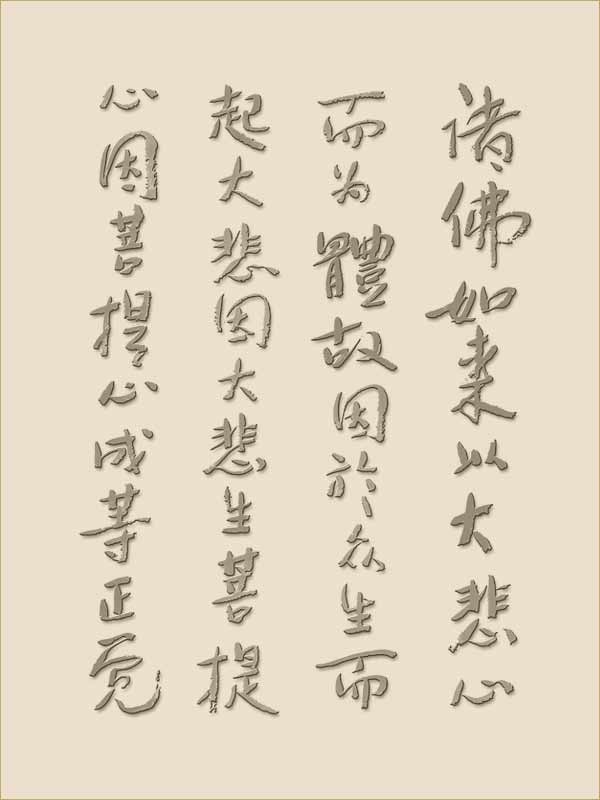 诸佛如来以大悲心
而为體故因於众生而
起大悲因大悲生菩提
心因菩提心成等正觉